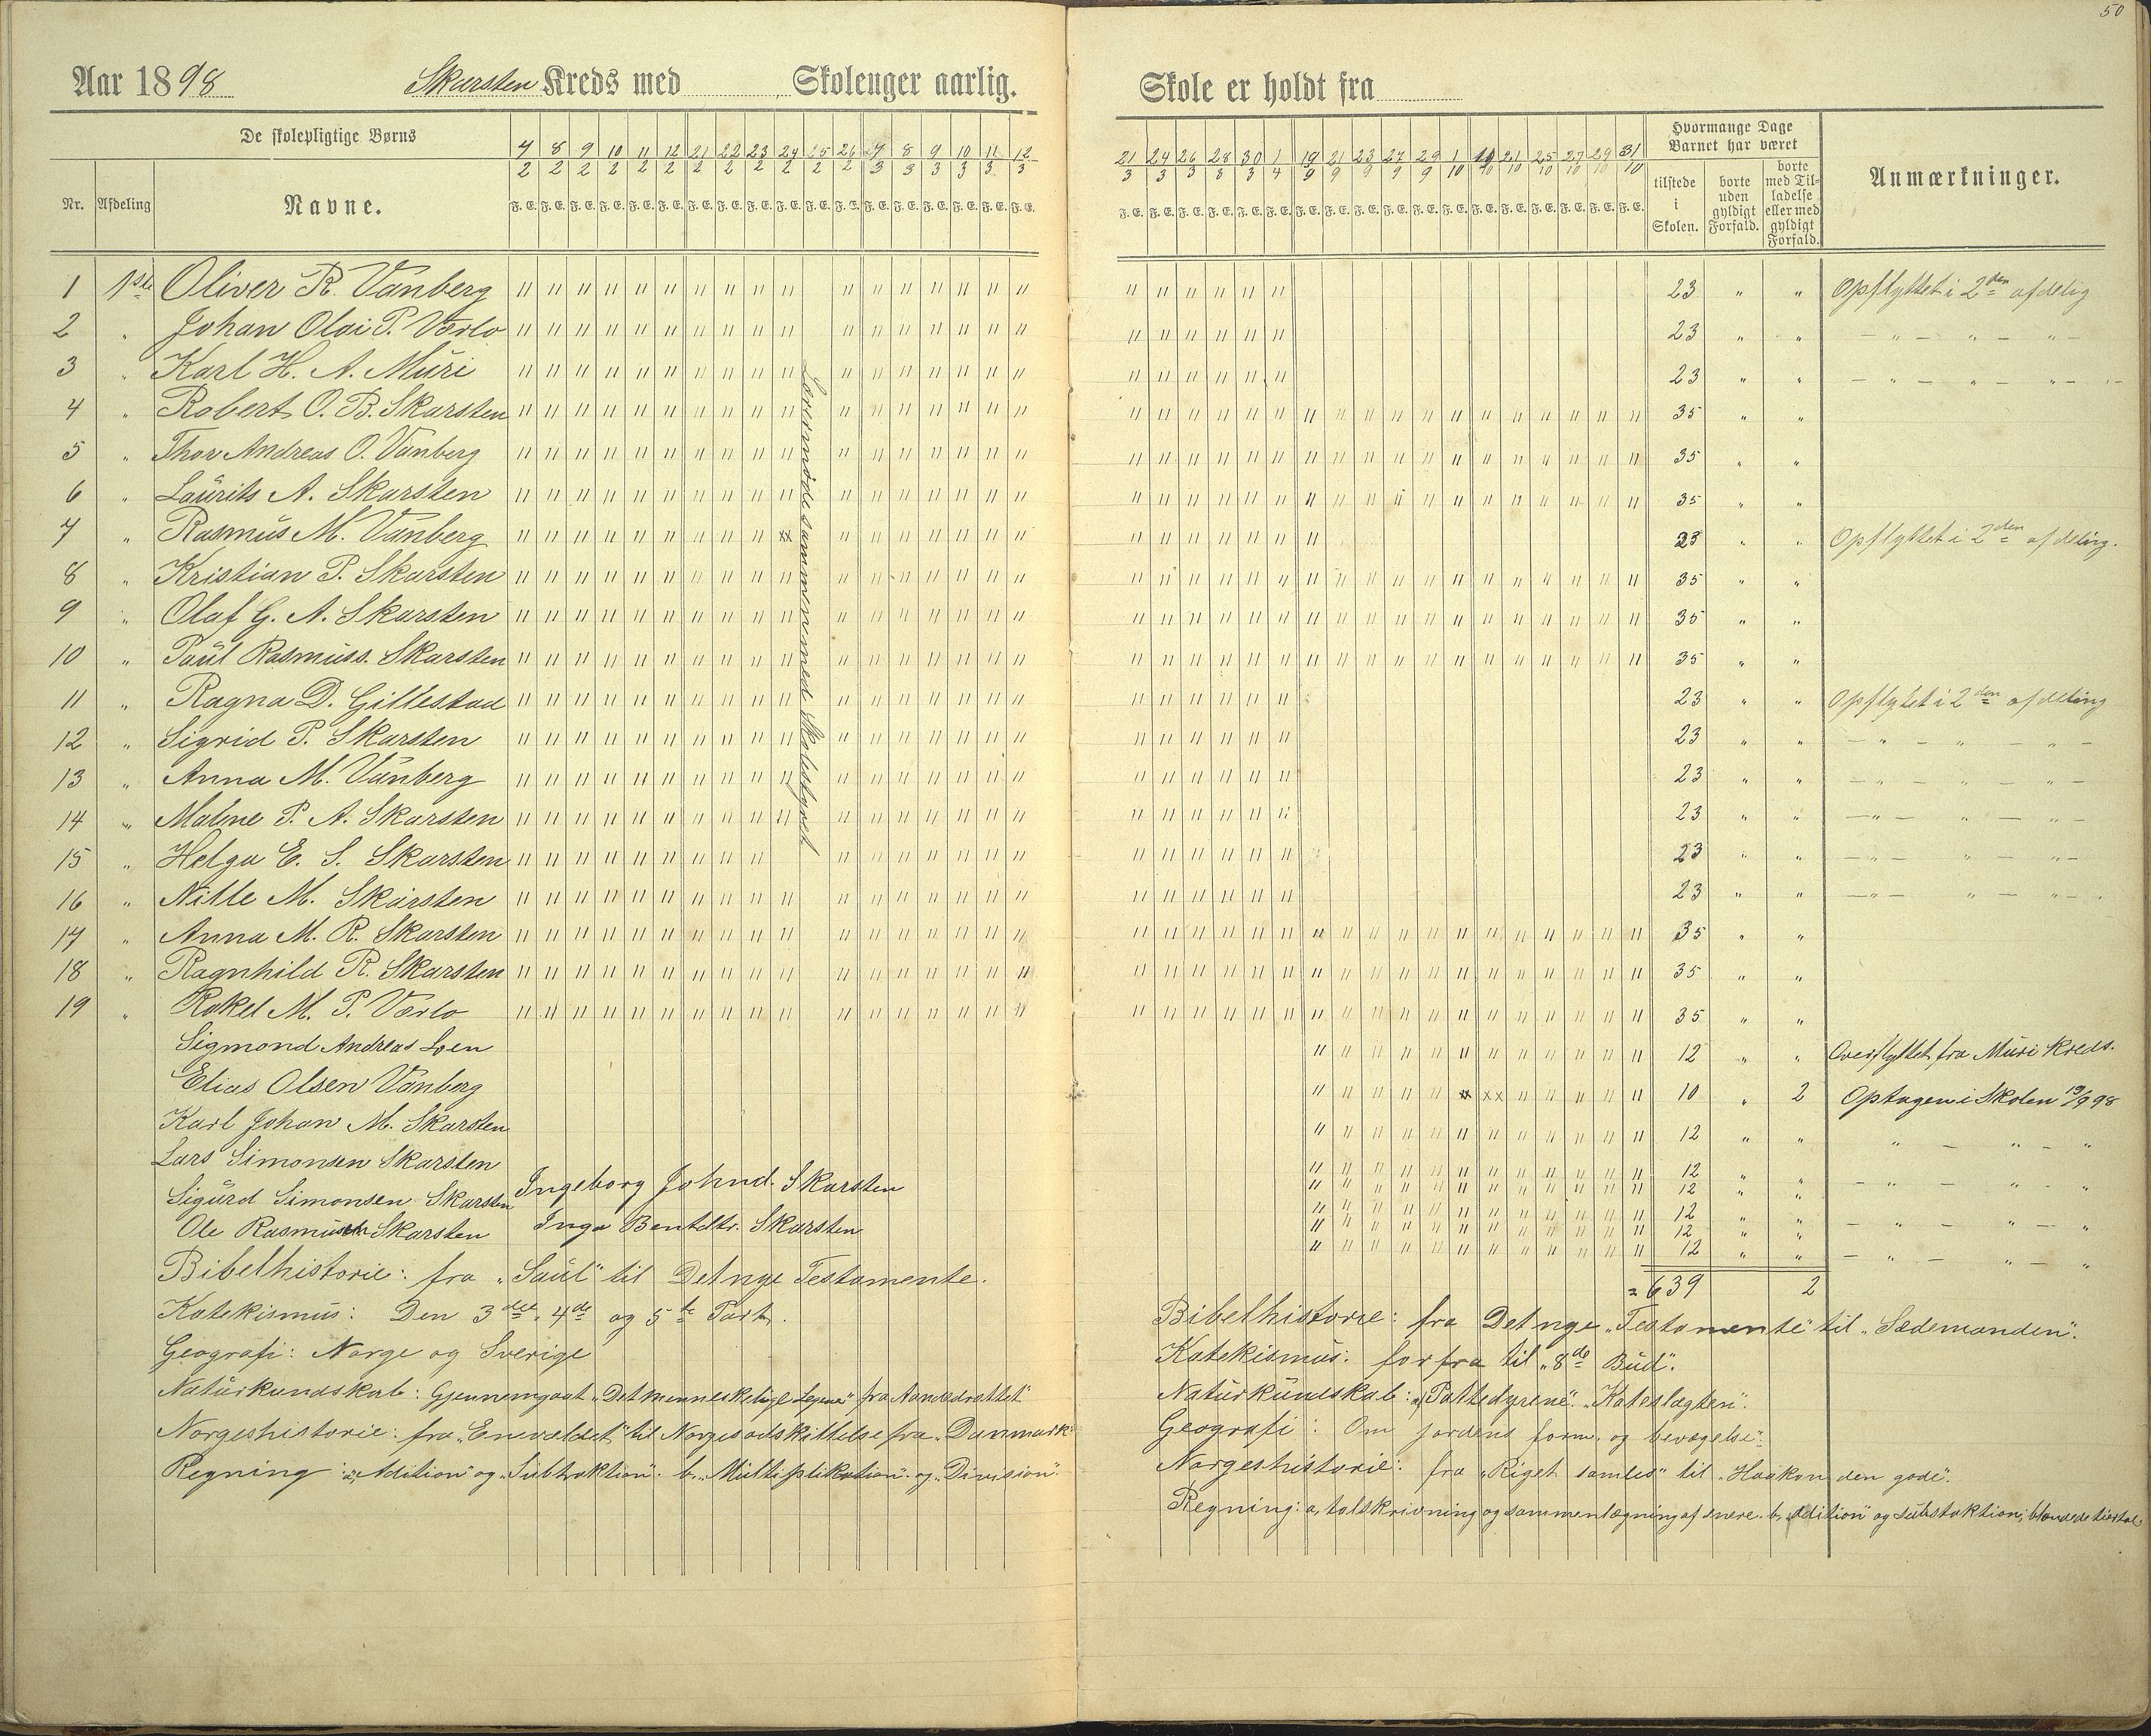 50
Aar 1898 Skarsten Kreds med Skoleuger aarlig. Skole er holdt fra
De skolepligtige Børns
Nr. Afdeling Navne.
7/2 8/2 9/2 10/2 11/2 12/2 21/2 22/2 23/2 24/2 25/2 26/2 8/3 9/3 10/3 11/3 12/3
F. E. F. E. F. E. F. E. F. E. F. E. F. E. F. E. F. E. F. E. F. E. F. E. F. E. F. E. F. E. F. E. F. E. F. E.
21/3 24/3 26/3 28/3 30/3 1/4 19/9 21/9 23/9 27/9 29/9 1/10 21/10 25/10 27/10 29/10 31/10
F. E. F. E. F. E. F. E. F. E. F. E. F. E. F. E. F. E. F. E. F. E. F. E. F. E. F. E. F. E. F. E. F. E. F. E.
Hvormange Dage Barnet har været
tilstede i Skolen.
borte uden gyldigt Forfald.
borte med Tilladelse eller med gyldigt Forfald.
Anmærkninger.
1 1ste Oliver R. Vanberg 23 " " Opflyttet i 2den afdelig
2 " Johan Olai P. Værlo 23 " " — " — " — " —
3 " Karl H. A. Muri 23 " " — " — " — " —
4 " Robert O. B. Skarsten 35 " "
5 " Thor Andreas O. Vanberg 35 " "
6 " Laurits A. Skarsten 35 " "
7 " Rasmus M. Vanberg xx 23 " " Opflyttet i 2den afdeling.
8 " Kristian P. Skarsten 35 " "
9 " Olaf G. A. Skarsten 35 " "
10 " Paul Rasmuss. Skarsten 35 " "
11 " Ragna D. Gillestad 23 " " Opflytet i 2den afdeling
12 " Sigrid P. Skarsten 23 " " — " — " — " —
13 " Anna M. Vanberg 23 " " — " — " — " —
14 " Malene P. A. Skarsten 23 " " — " — " — " —
15 " Helga E. S. Skarsten 23 " " — " — " — " —
16 " Nille M. Skarsten 23 " " — " — " — " —
17 " Anna M. R. Skarsten 35 " "
18 " Ragnhild R. Skarsten 35 " "
19 " Rakel M. P. Værlo 35 " "
Lærermøde sammen med Skolestyret
Sigmond Andreas Loen 12 " " Overflyttet fra Muri Kreds.
Elias Olsen Vanberg xx xx 10 " 2 Optagen i Skolen 19/9 98
Karl Johan M. Skarsten 12 " " " — " — "
Lars Simonsen Skarsten 12 " "
Sigurd Simonsen Skarsten 12 " " — " — " — "
Ingeborg Johnd. Skarsten 12 " "
Ole Rasmussen Skarsten 12 " " — " — " — "
Inga Bentdtr. Skarsten 12 " " — " — " — "
= 639 2
Bibelhistorie: fra "Saul" til Det nye Testamente.
Katekismus: Den 3die, 4de og 5te Part.
Geografi: Norge og Sverige
Naturkundskab: Gjennemgaat "Det menneskelige Legeme" fra Aandedrættet"
Norgeshistorie: fra "Enevældet" til Norges adskillelse fra "Danmark"
Regning: a, "Adition" og "Subtraktion". b. "Multiplikation" og "Division".
Bibelhistorie: fra Det nye "Testamente" til "Sædemanden".
Katekismus: forfra til "8de Bud".
Naturkundskab: a, "Pattedyrene". "Kateslægten".
Geografi: Om jordens form og bevægelse".
Norgeshistorie: fra "Riget samles" til "Haakon den gode".
Regning: a, talskrivning og sammenlægning af enere. b, Adition" og Subtraktion; blandede tiertal.